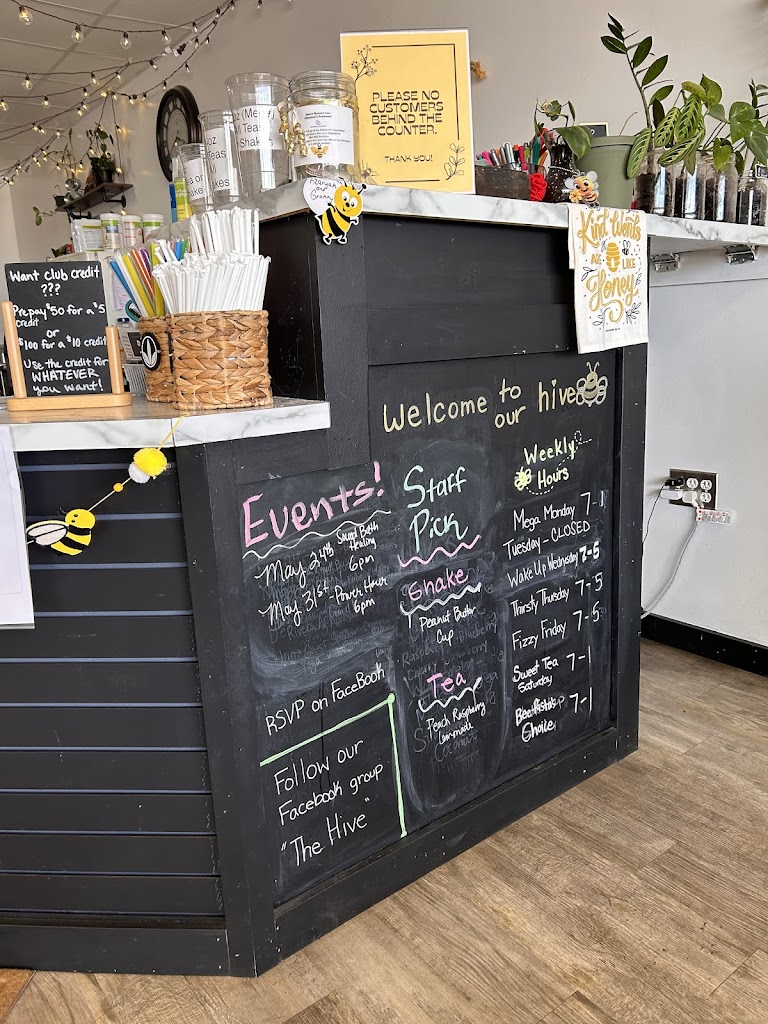 PLEASE NO
CUSTOMERS
BEHIND THE
COUNTER.
THANK YOU!
oz (Me
l Teas
Shak
oz
Teas
Want club credit
???
Prepay $50 for a $5
credit
or
$100 for a $10 credit
Use the credit for
WHATEVER
you want!
Kind Words
ARE LIKE
Honey
Welcome to
our hive
Events!
May 24th Sound Bath
Healing
6pm
May 31st Power Hour
6pm
RSVP on FaceBook
Follow our
Facebook group
"The Hive"
Staff
Pick
Shake
Peanut Butter
Cup
Tea
Peach Raspberry
Lemonade
Weekly
Hours
Mega Monday 7-1
Tuesday - CLOSED
Wake Up Wednesday 7-5
Thirsty Thursday 7-5
Fizzy Friday 7-5
Sweet Tea
Saturday 7-1
Choice 7-1